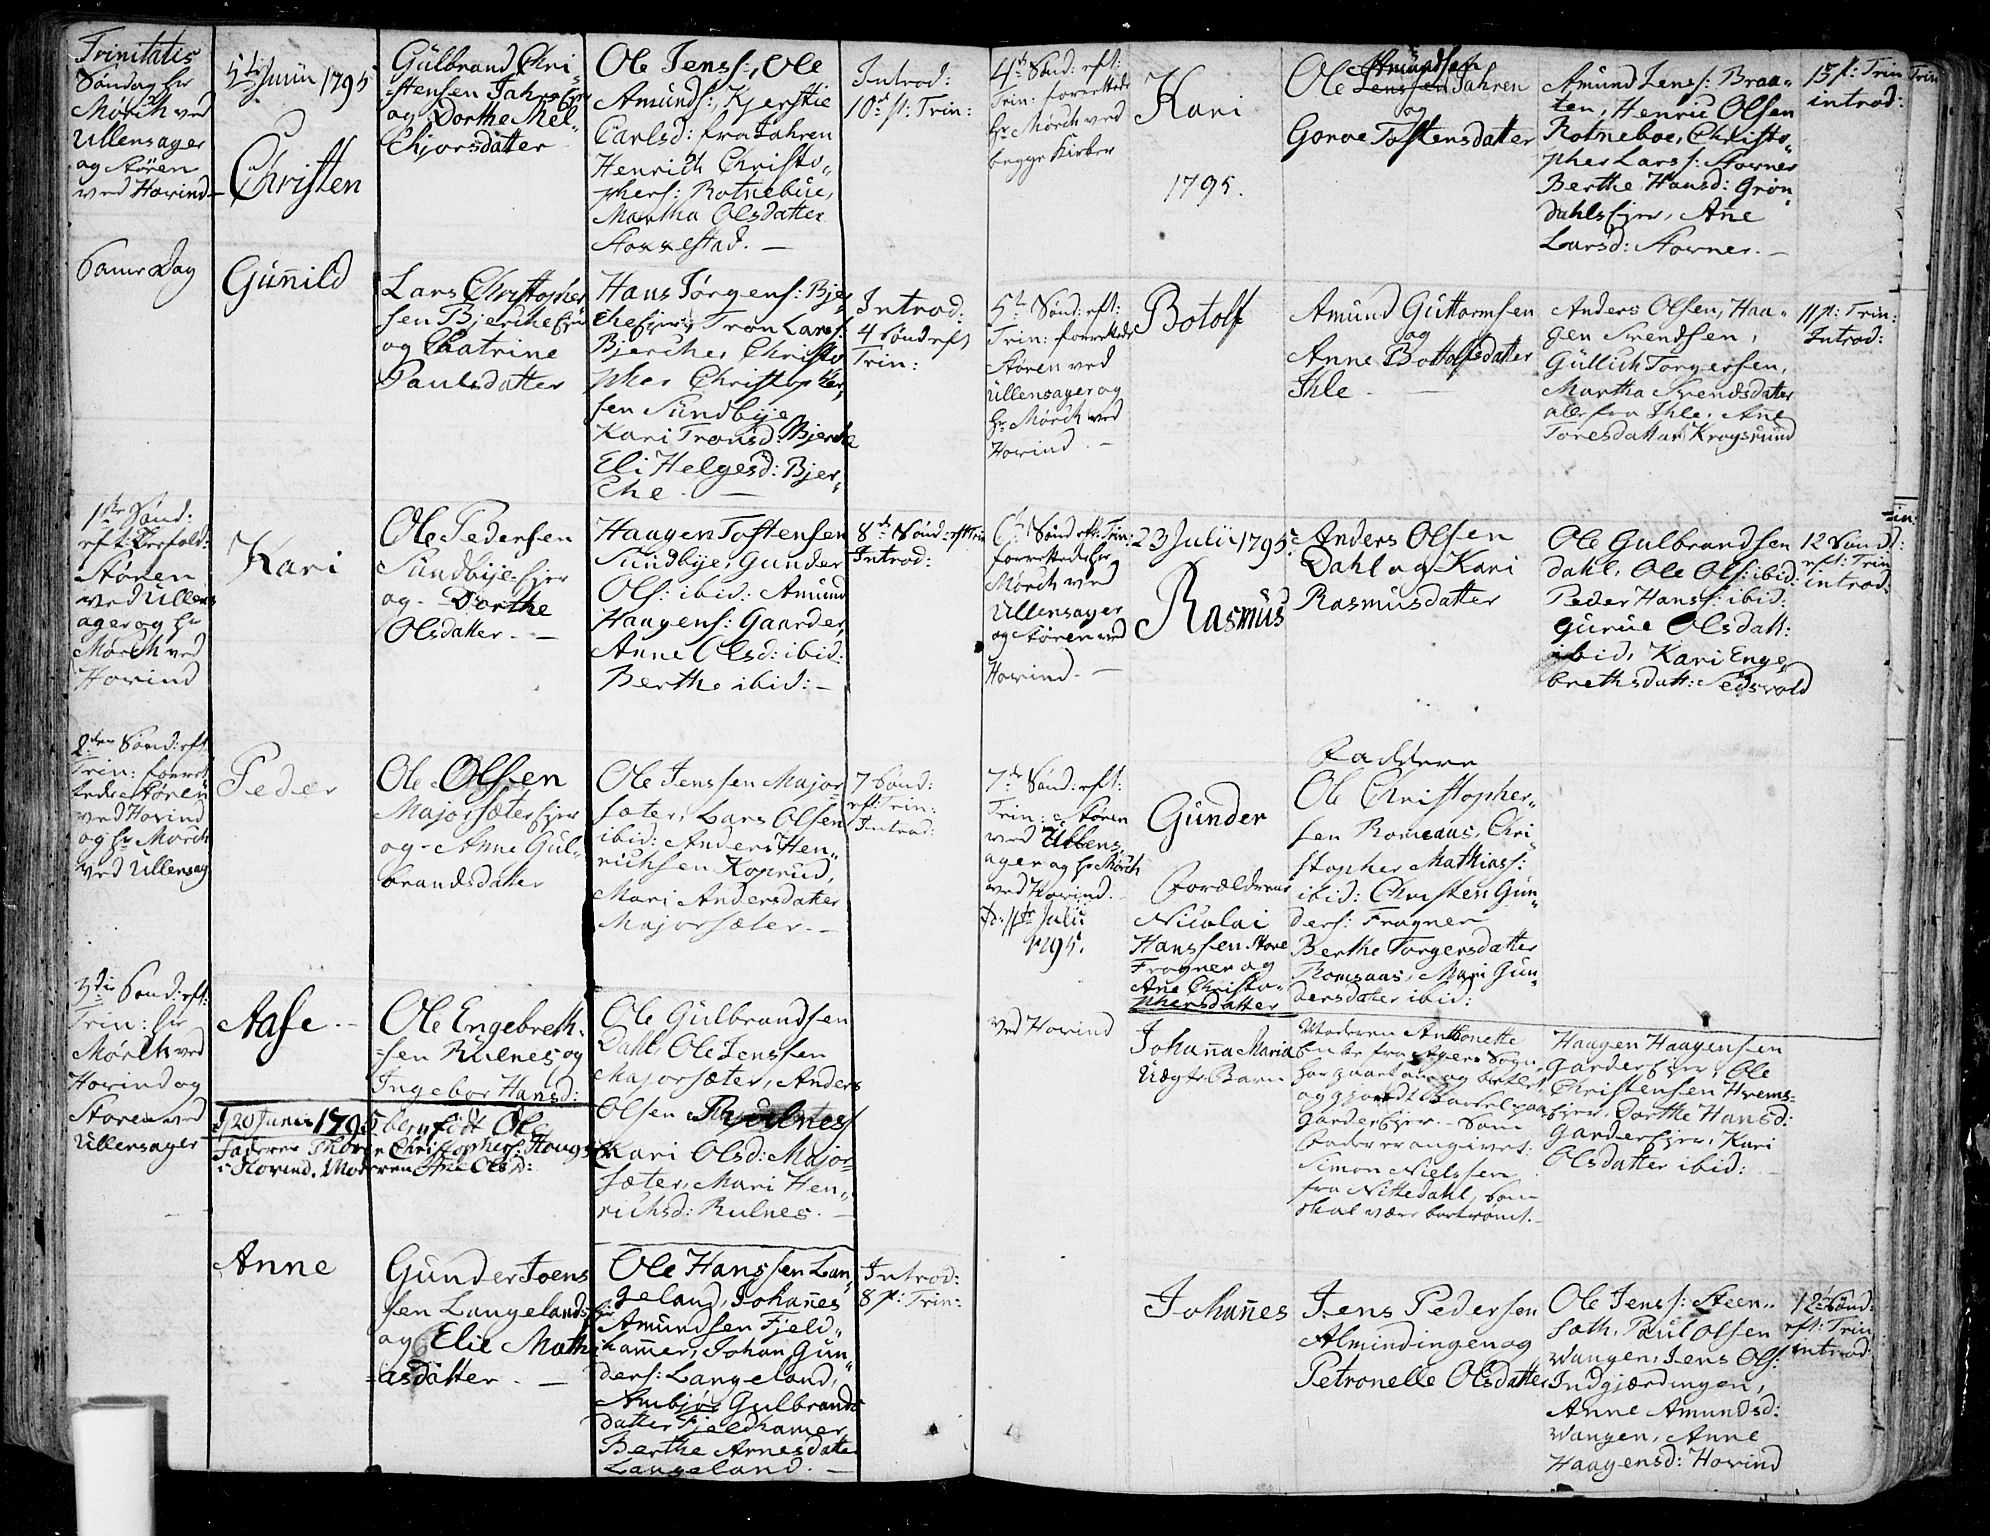 Trinitatis
Søndag hr
Mørch ved
Ullensager
og Støren
ved Hovind
5te Junii 1795
Christen
Gulbrand Chri-
stensen Jahr Ejer
og Dorthe Mel-
chjorsdatter
Ole Jenss:, Ole
Amunds:, Kjerstie
Carlsd: fra Jahren
Henrich Christo-
phers: Rotnebue,
Martha Olsdatter
Stoxrestad. —
Introd:
10de p: Trin:
Samme Dag
Guñild
Lars Christopher
sen Bjerche Ejer
og Chatrine
Paulsdatter
Hans Jørgens: Bjer
che Ejer, Tron Larss:
Bjerche, Christo
pher Christopher,
sen Sundbye
Kari Tronsd: Bjerche
Eli Helgesd: Bjer-
che. —
Introd:
4 Sønd eft
Trin:
1ste Sønd:
eft:
Støren
ved Ullens
ager og hr
Mørch ved
Hovind
Kari
Ole Pedersen
Sundbye Ejer
og Dorthe
Olsdatter. —
Haagen Tostensen
Sundbye, Gunder
Ols: ibid: Amund
Haagens: Gaarder,
Anne Olsd: ibid:
Berthe ibid: —
8de Sønd eft Trin
Introd:
2den Sønd: eft:
Trin: forret
tede Støren
ved Hovind
og hr Mørch
ved Ullensag
Peder
Ole Olsen
Majorsæter Ejer
og Anne Gul-
brandsdatter
Ole Jenssen Major
sæter, Lars Olsen
ibid: Anders Hen-
richsen Koprud,
Mari Andersdatter
Majorsæter. —
7 Sønd:
eft: Trin:
Introd:
3die Sønd: eft:
Trin: hr
Mørch ved
Hovind og
Støren ved
Ullensager
Aase. —
Ole Engebreth-
sen Rulnes og
Ingebor Hansd:
Ole Gulbrandsen
Dahl, Ole Jenssen
Majorsæter, Anders
Olsen
Kari Olsd: Major
sæter, Mari Hen-
richsd: Rulnes. —
d 20 Junii 1795 født Ole
Faderen Thor Christophers: Houg
i Hovind. Moderen Ane Olsd:
Anne
Gunder Joens
sen Langeland Ejer
og Elie Math
iasdatter. —
Ole Hanssen Lan-
geland, Johañes
Amundsen Fjeld-
hamer, Johan Gun-
ders: Langeland,
Ambjør Gulbrands
datter Fjeldhamer
Berthe Arnesdatter
Langeland. —
Introd:
8 p: Trin:
4de Sønd: eft:
Trin: forrettede
hr Mørch ved
begge Kirker
Kari
1795.
Amundsen
Ole Jenssen Jahren
og
Goroe Tostensdatter
Amund Jenss: Braa-
ten, Henric Olsen
Rotneboe, Christo-
pher Larss: Stovner
Berthe Hansd: Grøn-
dahls Ejer, Añe
Larsd: Stovner. —
13 p: Trin
introd:
Trin
5te Sønd: eft:
Trin: forrettede
Støren ved
Ullensager og
hr Mørch ved
Hovind. —
Botolf
Amund Guttormsen
og
Anne Bottolfsdatter
Ihle. —
Anders Olsen, Haa-
gen Svendsen,
Gullich Torgersen,
Martha Svendsdatter
alle fra Ihle, Ane
Toresdatter Krogsrund
11 p: Trin:
Introd:
6te Sønd eft: Trin:
forrettede hr
Mørch ved
Ullensager
og Støren ved
Hovind. —
23 Julii 1795.
Rasmus
Anders Olsen
Dahl og Kari
Rasmusdatter
Ole Gulbrandsen
Dahl, Ole Ols: ibid:
Peder Hanss: ibid:
Gurue Olsdatt:
ibid, Kari Enge
brethsdatt: Sedsvold
12 Sønd:
eft: Trin
introd.
7de Sønd: eft:
Trin: Støren
ved Ullens
ager og hr Mørch
ved Hovind. —
d: 11te Julii
1795.
Gunder
Forældrene
Nicolai
Hanssen Store
Frogner og
Ane Christo-
phersdatter
Faddere
Ole Christopher-
sen Romsaas, Chri
stopher Mathiass:
ibid: Christen Gun-
ders: Frogner
Berthe Torgersdatter
Romsaas, Mari Gun-
dersdatter ibid:
ved Hovind
Johaña Maria
Uægte Barn
Moderen Anthonette
Enke fra Agers Sogn
har gaaet om og betlet,
og gjordt Barsel paa
Garder Ejer. — Som
Fader er angivet:
Simon Nielssen
fra Nittedahl, som
skal være bortrømt. —
Haagen Haagensen
Garder Ejer, Ole
Christensen Hrems-
Ejer, Dorthe Hansd:
Garder Ejer, Kari
Olsdatter ibid: —
Johañes
Jens Pedersen
Almindingen og
Petronelle Olsdatter
Ole Jenss: Steen-
Paul Olsen
Wangen, Jens Ols:
Indgjærdingen,
Anne Amundsd:
Wangen, Anne
Haagensd: Hovind
12te Sønd:
eft: Trin
introd: